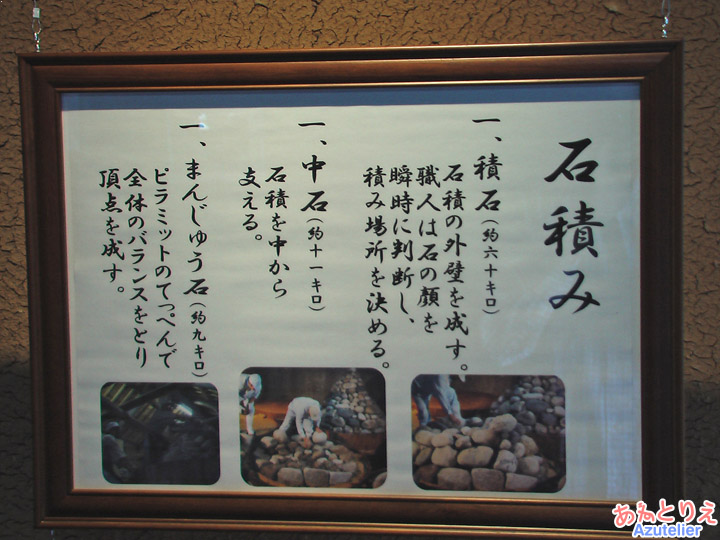 石積み
一、積石(約六十キロ)
石積の外壁を成す。
職人は石の顔を
瞬時に判断し、
積み場所を決める。
一、中石(約十一キロ)
石積を中から
支える。
一、まんじゅう石(約九キロ)
ピラミットのてっぺんで
全体のバランスをとり
頂点を成す。
あねとりえ
Azutelier